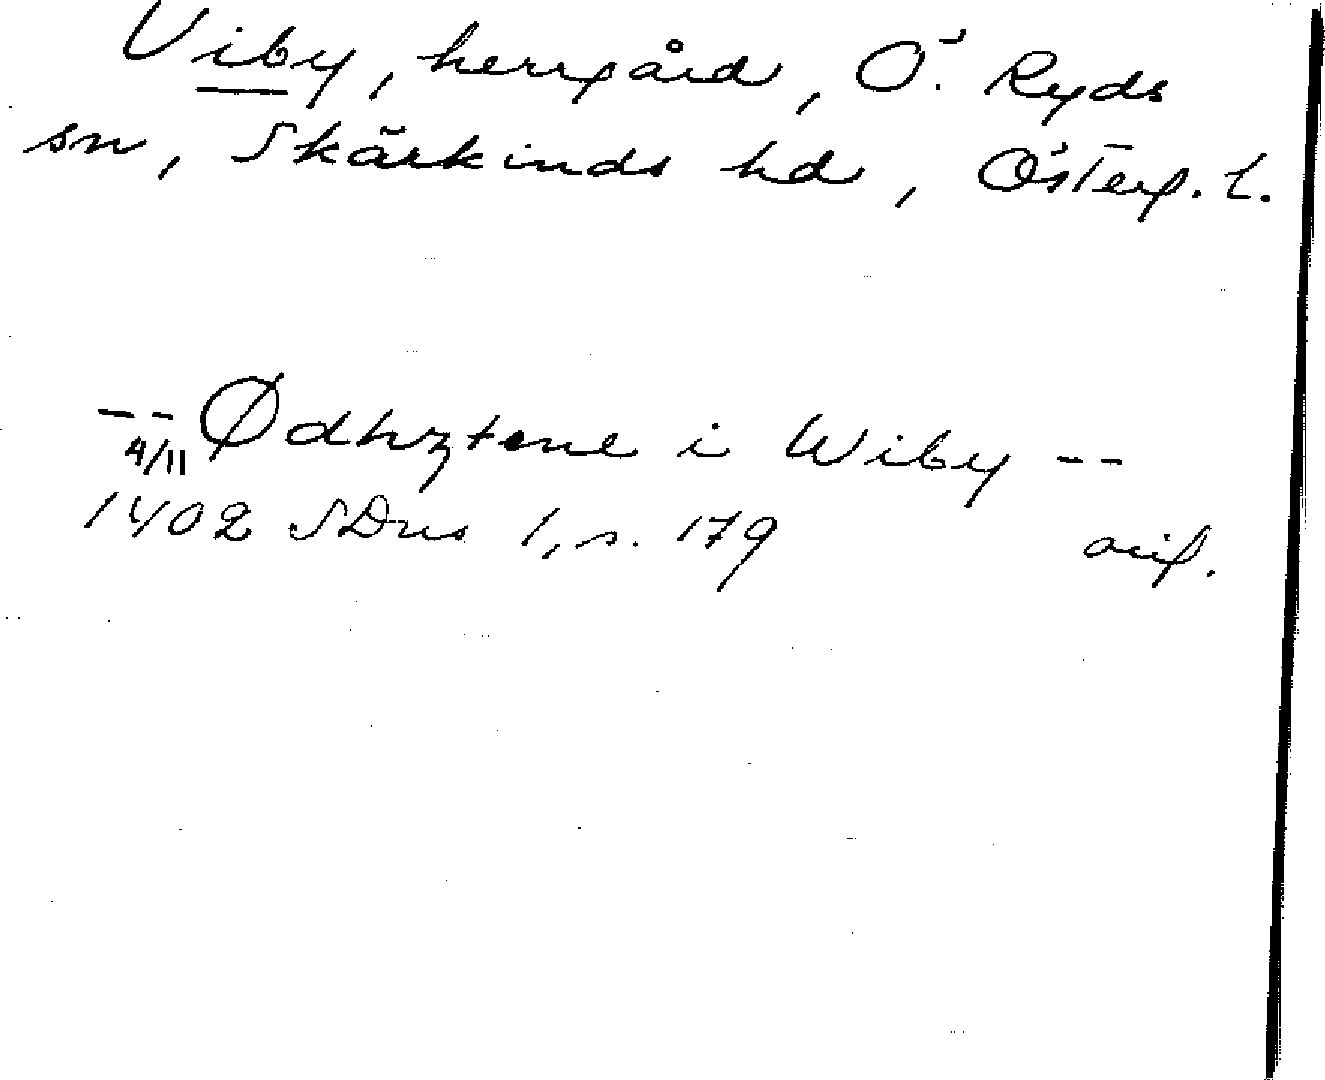 Viby, herrgård, Ö. Ryds
sn, Skärkinds hd, Österg. l.
-- Ødhgztene i Wiby --
4/11
1402 SDns 1, s. 179 orig.